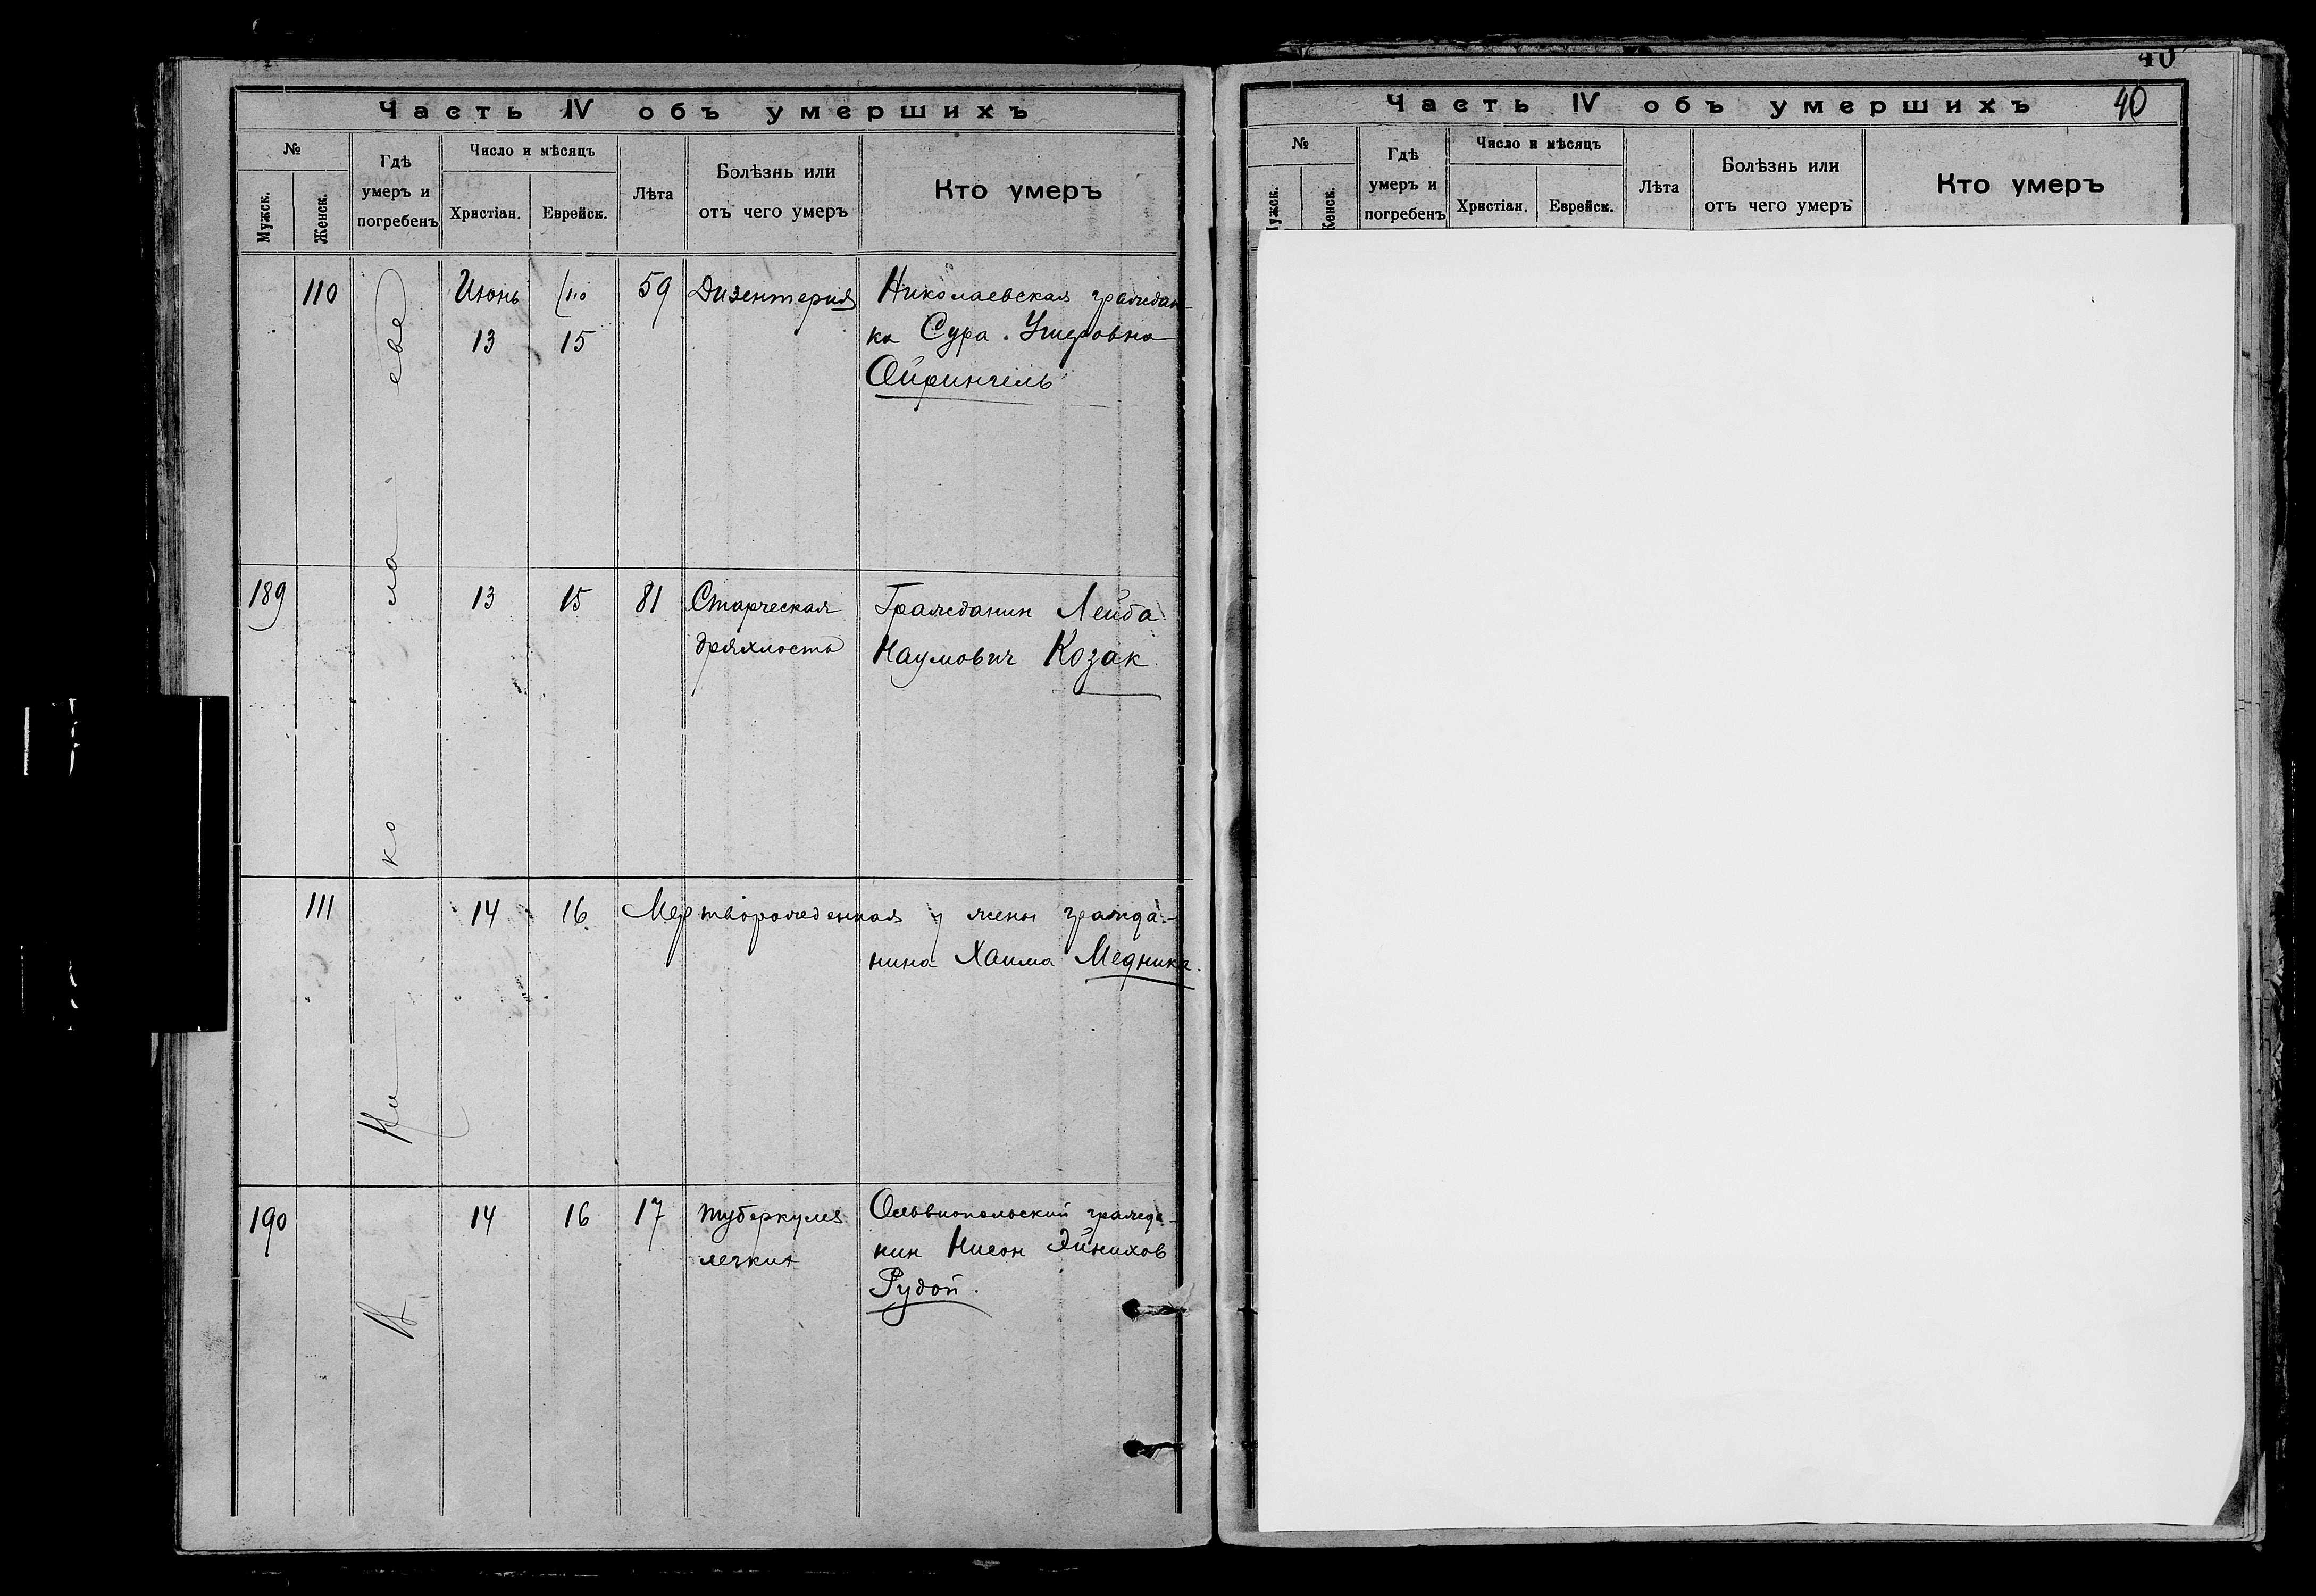 Часть IV объ умершихъ
№
Мужск.
Женск.
Гдѣ
умеръ и
погребенъ
Число и мѣсяцъ
Христіан.
Еврейск.
Лѣта
Болѣзнь или
отъ чего умеръ
Кто умеръ
110
Июнь
13
15
59
Дизентерия
Николаевская граждан-
ка Сура
Ойрингель
189
13
15
81
Старческая
дряхлость
Гражданин Лейба
Наумович Козак.
111
14
16
Мертворожденная у жены гражда-
нина Хаима Медника.
190
14
16
17
туберкулез
легких
Ольвиопольский гражда-
нин Нисон Эйнихов
Рудой.
В Николаеве
40
Часть IV объ умершихъ
40
№
Гдѣ
умеръ и
погребенъ
Число и мѣсяцъ
Христіан.
Еврейск.
Лѣта
Болѣзнь или
отъ чего умеръ
Кто умеръ